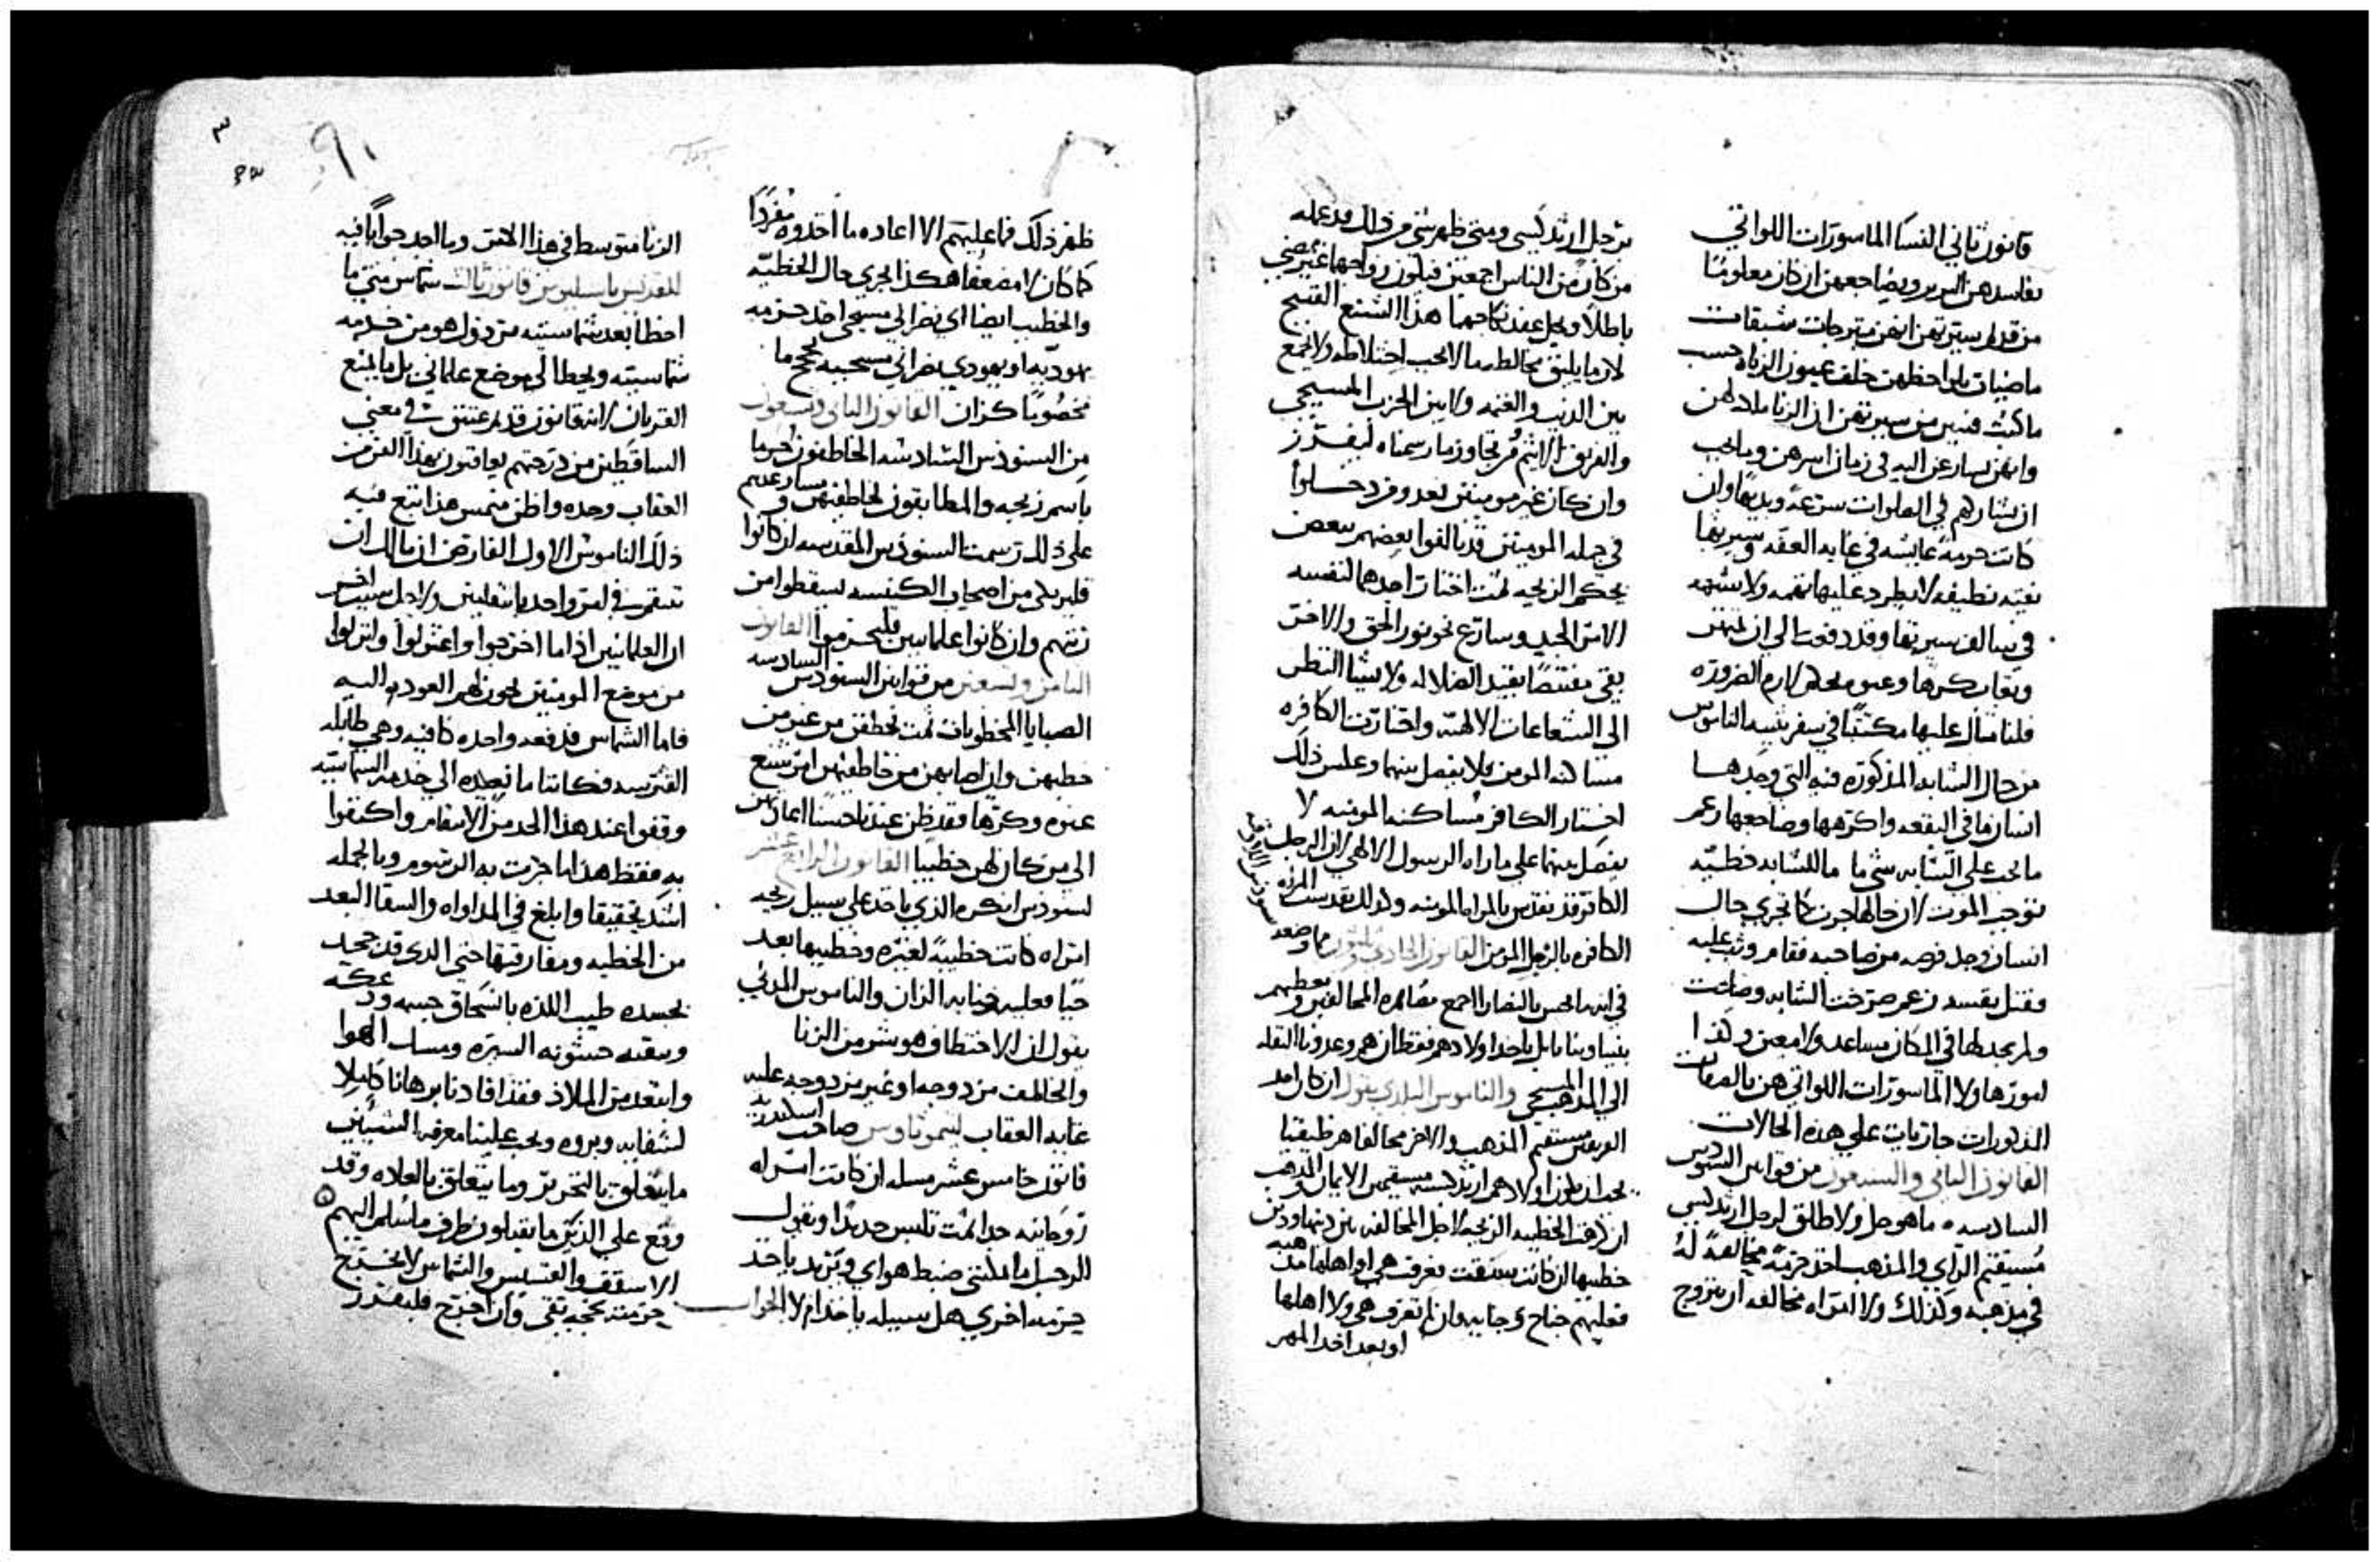 قانون ثاني النسا الماسورات اللواتي
يفاسدهن البربر ويضاجعهن ان كان معلومًا
من قديم سيرتهن انهن متبرجات شبقات
ماضيات بلواحظهن خلف عيون الزناه حسب
ما كتب فتبين من سيرتهن ان الزنا ملاد لهن
وانهن يسارعن اليه في زمان اسرهن وما يجب
ان نشاركهم في الصلوات سرعة وبديهًا وان
كانت حرمة عايشه في غايه العفه وسيرتها
نقيه نظيفه لا يطرد عليها تهمه ولا شبهه
في سالف سيرتها وقد دفعت الي ان تمتهن
وتعاب كرها وعنوه لاجل لازم الضروره
فلنا مثال عليها مكتتبًا في سفر تثنيه الناموس
من حال الشابه المذكوره فيه التي وجدها
انسان ما في البقعه واكرهها وضاجعها زعم
ما يجب علي الشابه شي ما ما للشابه خطيّه
توجب الموت لان حالها جرت كما تجري حال
انسان وجد فرصه من صاحبه فقام وثب عليه
وقتل نفسه زعم صرخت الشابه وصاتت
ولم يجد لها في المكان مساعد ولا معين وكذا
امورها ولا الماسورات اللواتي هن بالصفات
المذكورات جاريات علي هذه الحالات
القانون الثاني والسبعون من قوانين السنودس
السادسه ما هو حل ولا طلق لرجل ارثدكسي
مستقيم الراي والمذهب اخذ حرمة مخالفة له
في مذهبه وكذلك ولا لامراه مخالفه ان تتزوج
برجل ارثدكسي ومتى ظهر شي من ذلك قد عمله
من كان من الناس اجمعين فيكون زواجها غير مضي
باطلاً ويحل عقد نكاحهما هذا الشنع القبيح
لان ما يليق مخالطه ما لا يجب اختلاطه ولا يجمع
بين الديب والغنمه ولا بين الحزب المسيحي
والفريق الاثيم فمن تجاوز ما رسمناه ليفرز
وان كان غير مومنين بعد ومن دخلوا
في جمله المومنين قد تالفوا بعضهم ببعض
بحكم الزيجه ثمت اختار احدهما لنفسه
الامر الجيد وسارع نحو نور الحق والاخر
بقي مقتنصًا بقيد الضلاله ولا يشا النظر
الى الشعاعات الالهيه واختارت الكافره
مساكنه المومن فلا يفصل بينهما وعكس ذلك
اختار الكافر مساكنه المومنه لا
يفصل بينهما علي ما راه الرسول الالهي لان الرجل
الكافر قد تقدس بالمراه المومنه وكذلك تقدست المراه
الكافره بالرجل المومن القانون الحادي وثلثون مما وضعه
في انه ما يحسن بالنصارا الجمع مصاهره المخالفين ونعطيهم
بنينا وبناتنا بل ياخذ اولادهم فقط ان هم وعدونا النقله
الي المذهب المسيحي والناموس البلدي يقول ان كان احد
العروسين مستقيم المذهب والاخر مخالفا هرطيقيا
يجب ان يكون اولادهم ارثدكسيه مستقيمين الايمان والمذهب
ان وقف الخطيبه الزيجه لاجل المخالفه بين دينها ودين
خطيبها ان كانت سبقت فعرفت هي او اهلها مذهبه
فعليهم جناح وجنايه وان لم تعرف هي ولا اهلها
او بعد اخذ المهر
ظهر ذلك فما عليهم الا اعاده ما اخذوه مفردًا
كما كان لا مضعفا هكذا يجري حال الخطيبه
والخطيب ايضا اي نصراني مسيحي اخذ حرمه
يهوديه او يهودي نصراني مسيحيه يحكم
مخصوصًا كزان القانون الثاني وتسعون
من السنودس السادسه الخاطفون حرما
باسم زيجه والمطابقون لخاطفيهن ومساعدهم
على ذلك رسمت السنودس المقدسه ان كانوا
قليريكى من اصحاب الكنيسه يسقطوا من
رتبهم وان كانوا علمانيين فليحرموا القانون
الثامن وتسعين من قوانين السنودس السادسه
الصبايا المخطوبات ثمت تخطفن من غير من
خطبهن وان اصابهن من خاطفيهن امر شنيع
عنوه وكرها فقد يظن عندنا حسنًا اعادتهن
الى من كان لهن خطيبا القانون الرابع عشر
لسنودس انكره الذي ياخذ علي سبيل زيجه
امراه كانت خطيبة لغيره وخطيبها بعد
حيًا فعليه جنايه الزان والناموس المدني
يقول ان الاختطاف هو شر من الزنا
والخاطف مزدوجه او غير مزدوجه عليه
غايه العقاب ليموثاوس صاحب اسكندريه
قانون خامس عشر مساله ان كانت امراه
روحانيه جدا ثمت تلبس جديدًا ويقول
الرجل ما امكنني ضبط هواي ويريد ياخذ
حرمه اخرى هل سبيله ياخذ ام لا الجواب
الزنا متوسط في هذا الامر وما اجد جوابًا فيه
للقديس باسيليوس قانون ثالث شماس متى ما
اخطا بعد شماسيته مرذول هو من خدمه
شماسيته ويحطا الي موضع علماني بل ما يمنع
القربان لانه قانون قديم عتيق في معني
الساقطين من درجتهم يعاقبون بهذا الفن من
العقاب وحده واظن متمس هذا اتبع فيه
ذلك الناموس الاول الفارض ان ما لك ان
تنتقم في امر واحد بانتقامين ولاجل سبب اخر
ان العلمانيين اذا ما اخرجوا واعتزلوا وانزلوا
من موضع المومنين يجوز لهم العود اليه
فاما الشماس فدفعه واحده كافيه وهي طايله
القترسه فكاننا ما نعيده الي خدمه الشماسيه
وقفوا عند هذا الحد من الانتقام واكتفوا
به فقط هذا ما جرت به الرسوم وبالجمله
اشد تحقيقا وابلغ في المداواه والشفا البعد
من الخطيه ومفارقتها حتى الذي قد جحد
بجسده طيب اللذه بانسحاق جسمه
وبيقه خشونه السيره ومسك الهوا
وابتعد من الملاذ فقد افادنا برهانا كاملا
لشفايه وبروه ويجب علينا معرفه الشيئين
ما يتعلق بالتحرير وما يتعلق بالعاده وقد
وقع علي الذين ما يقبلون طرف ما سلم اليهم
الاسقف والقسيس والشماس لا يخرج
حرمته بحجه تقى وان اخرج فليفرز